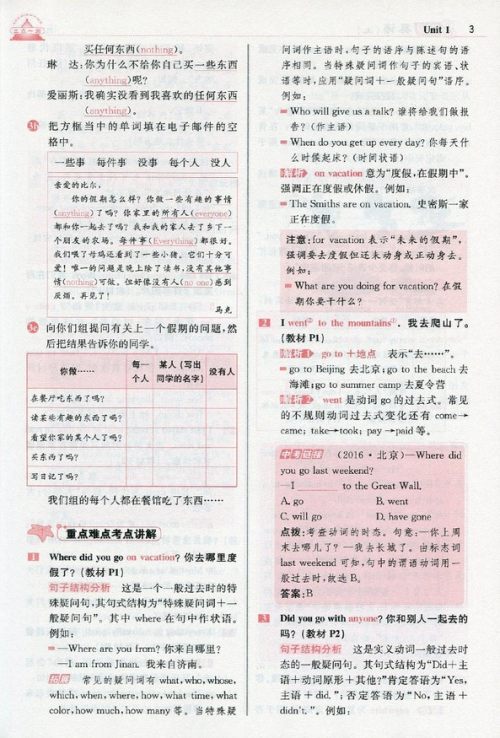 Unit 1 3
买任何东西(nothing)。
琳 达:你为什么不给你自己买一些东西
(anything)呢?
爱丽斯:我确实没看到我喜欢的任何东西
(anything)。
3b 把方框当中的单词填在电子邮件的空
格中。
一些事 每件事 没事 每个人 没人
亲爱的比尔,
你的假期怎么样? 你做一些有趣的事情
(anything)了吗? 你家里的所有人(everyone)
都和你一起去了吗? 我和我的家人去了乡下一
个朋友的农场。每件事(Everything)都很好。
我们喂了母鸡还看到了一些小猪。它们十分可
爱! 唯一的问题是晚上除了读书,没有其他事
情(nothing)可做。但好像没有人(no one)感到
厌烦。再见了!
马克
3c 向你们组提问有关上一个假期的问题,然
后把结果告诉你的同学。
你做…… 每一个人 某人(写出同学的名字) 没有人
在餐厅吃东西了吗?
读某些有趣的东西了吗?
看望你家的某个人了吗?
买东西了吗?
写日记了吗?
我们组的每个人都在餐馆吃了东西……
重点难点考点讲解
1 Where did you go on vacation? 你去哪里度
假了? (教材 P1)
句子结构分析 这是一个一般过去时的特
殊疑问句,其句式结构为“特殊疑问词+一
般疑问句”。其中 where 在句中作状语。
例如:
—Where are you from? 你来自哪里?
—I am from Jinan. 我来自济南。
拓展 常见的疑问词有 what, who, whose,
which, when, where, how, what time, what
color, how much, how many 等。当特殊疑
问词作主语时,句子的语序与陈述句的语
序相同。当特殊疑问词作句子的宾语、状
语等时,应用“疑问词十一般疑问句”语序。
例如:
Who will give us a talk? 谁将给我们做报
告? (作主语)
When do you get up every day? 你每天什
么时候起床? (时间状语)
解析 on vacation 意为“度假,在假期中”。
强调正在度假或休假。例如:
The Smiths are on vacation. 史密斯一家
正在度假。
注意:for vacation 表示“未来的假期”,
强调要去度假但还未动身或正动身去。
例如:
What are you doing for vacation? 在假
期你要干什么?
2 I went② to the mountains①. 我去爬山了。
(教材 P1)
解析1 go to 十地点 表示“去……”。
go to Beijing 去北京;go to the beach 去
海滩;go to summer camp 去夏令营
解析2 went 是动词 go 的过去式。常见
的不规则动词过去式变化还有 come→
came; take→took; pay→paid 等。
中考回放 (2016·北京)—Where did
you go last weekend?
—I ______ to the Great Wall.
A. go B. went
C. will go D. have gone
点拨:考查动词的时态。句意:—你上周
末去哪儿了? —我去长城了。由标志词
last weekend 可知,句中的谓语动词用一
般过去时,故选 B。
答案:B
3 Did you go with anyone? 你和别人一起去的
吗? (教材 P2)
句子结构分析 这是实义动词一般过去时
态的一般疑问句。其句式结构为“Did+主
语+动词原形+其他?”肯定答语为“Yes,
主语+did.”;否定答语为“No,主语+
didn't.”。例如: